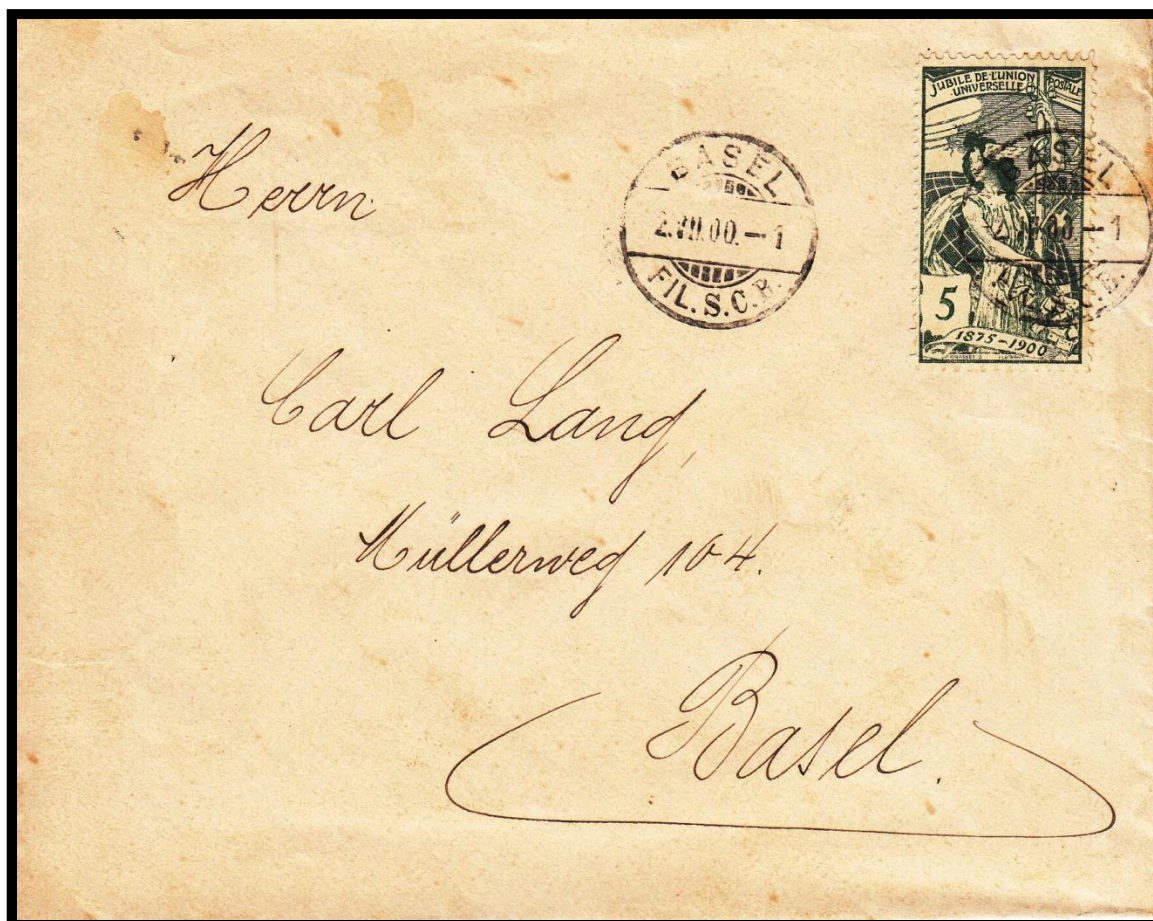 Herrn
BASEL
2.VII.00.–1
FIL.S.C.B.
JUBILE DE L'UNION POSTALE
UNIVERSELLE
BASEL
00.–1
5
1875–1900
Carl Lang,
Müllerweg 104.
Basel.